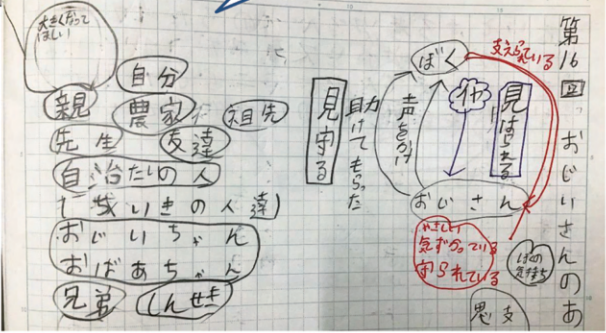 第16回 おじいさんのあ
支えられている
ぼく
見はられる
声をかけ
助けてもらった
見守る
おじさん
やさしい
気ずかっている
守られている
ぼくの
気持ち
思
支
大きくなって
ほしい
自分
親
農家
祖先
先生
友達
自治たいの人
ち域いきの人達
おじいちゃん
おばあちゃん
兄弟
しんせき